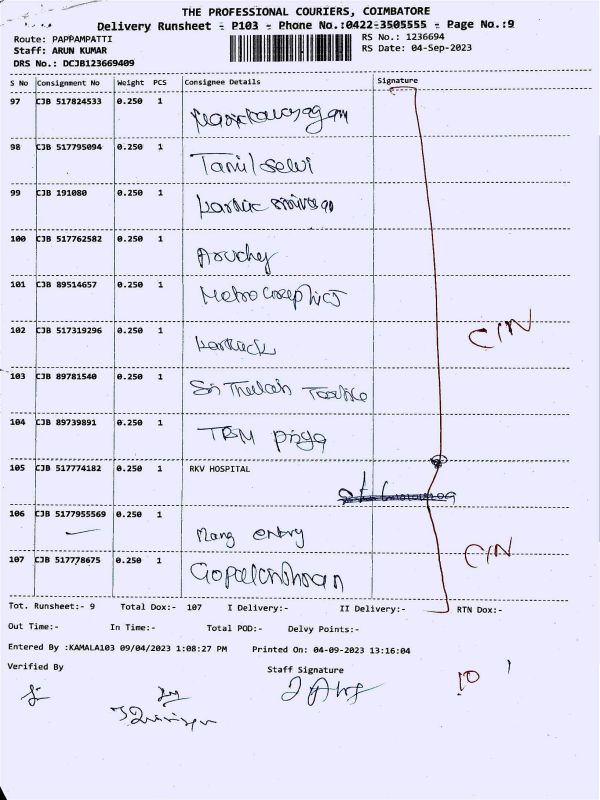 THE PROFESSIONAL COURIERS, COIMBATORE
Delivery Runsheet - P103 - Phone No.:0422-3505555 - Page No.:9
Route: PAPPAMPATTI
RS No.: 1236694
Staff: ARUN KUMAR
RS Date: 04-Sep-2023
DRS No.: DCJB123669409
S No Consignment No Weight PCS Consignee Details Signature
97 CJB 517824533 0.250 1
98 CJB 517795094 0.250 1 Tamil selvi
99 CJB 191080 0.250 1
100 CJB 517762582 0.250 1
101 CJB 89514657 0.250 1 Metro
102 CJB 517319296 0.250 1
CIN
103 CJB 89781540 0.250 1 Sri
104 CJB 89739891 0.250 1 TBM priya
105 CJB 517774182 0.250 1 RKV HOSPITAL
106 CJB 5177955569 0.250 1 Mang entry
CIN
107 CJB 517778675 0.250 1
Tot. Runsheet:- 9 Total Dox:- 107 I Delivery:- II Delivery:- RTN Dox:-
Out Time:- In Time:- Total POD:- Delvy Points:-
Entered By :KAMALA103 09/04/2023 1:08:27 PM Printed On: 04-09-2023 13:16:04
Verified By Staff Signature
10